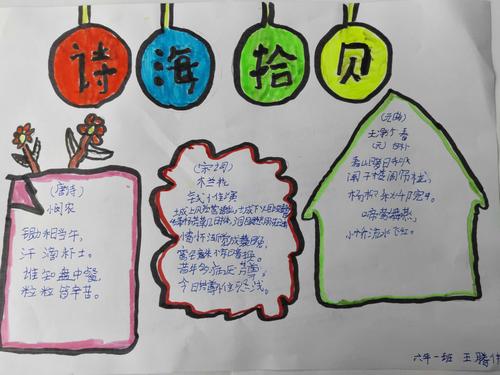 诗海拾贝
(唐诗)
悯农
锄禾日当午,
汗滴禾下土。
谁知盘中餐
粒粒皆辛苦。
(宋词)
木兰花
钱惟演
情怀渐觉成衰晚,
鸾镜朱颜惊暗换。
昔年多病厌芳尊
今日芳尊惟恐浅。
(元曲)
天净沙 春
(元) 白朴
春山暖日和风
阑干楼阁帘栊,
杨柳秋千院中。
啼莺舞燕
小桥流水飞红。
六年一班 王腾